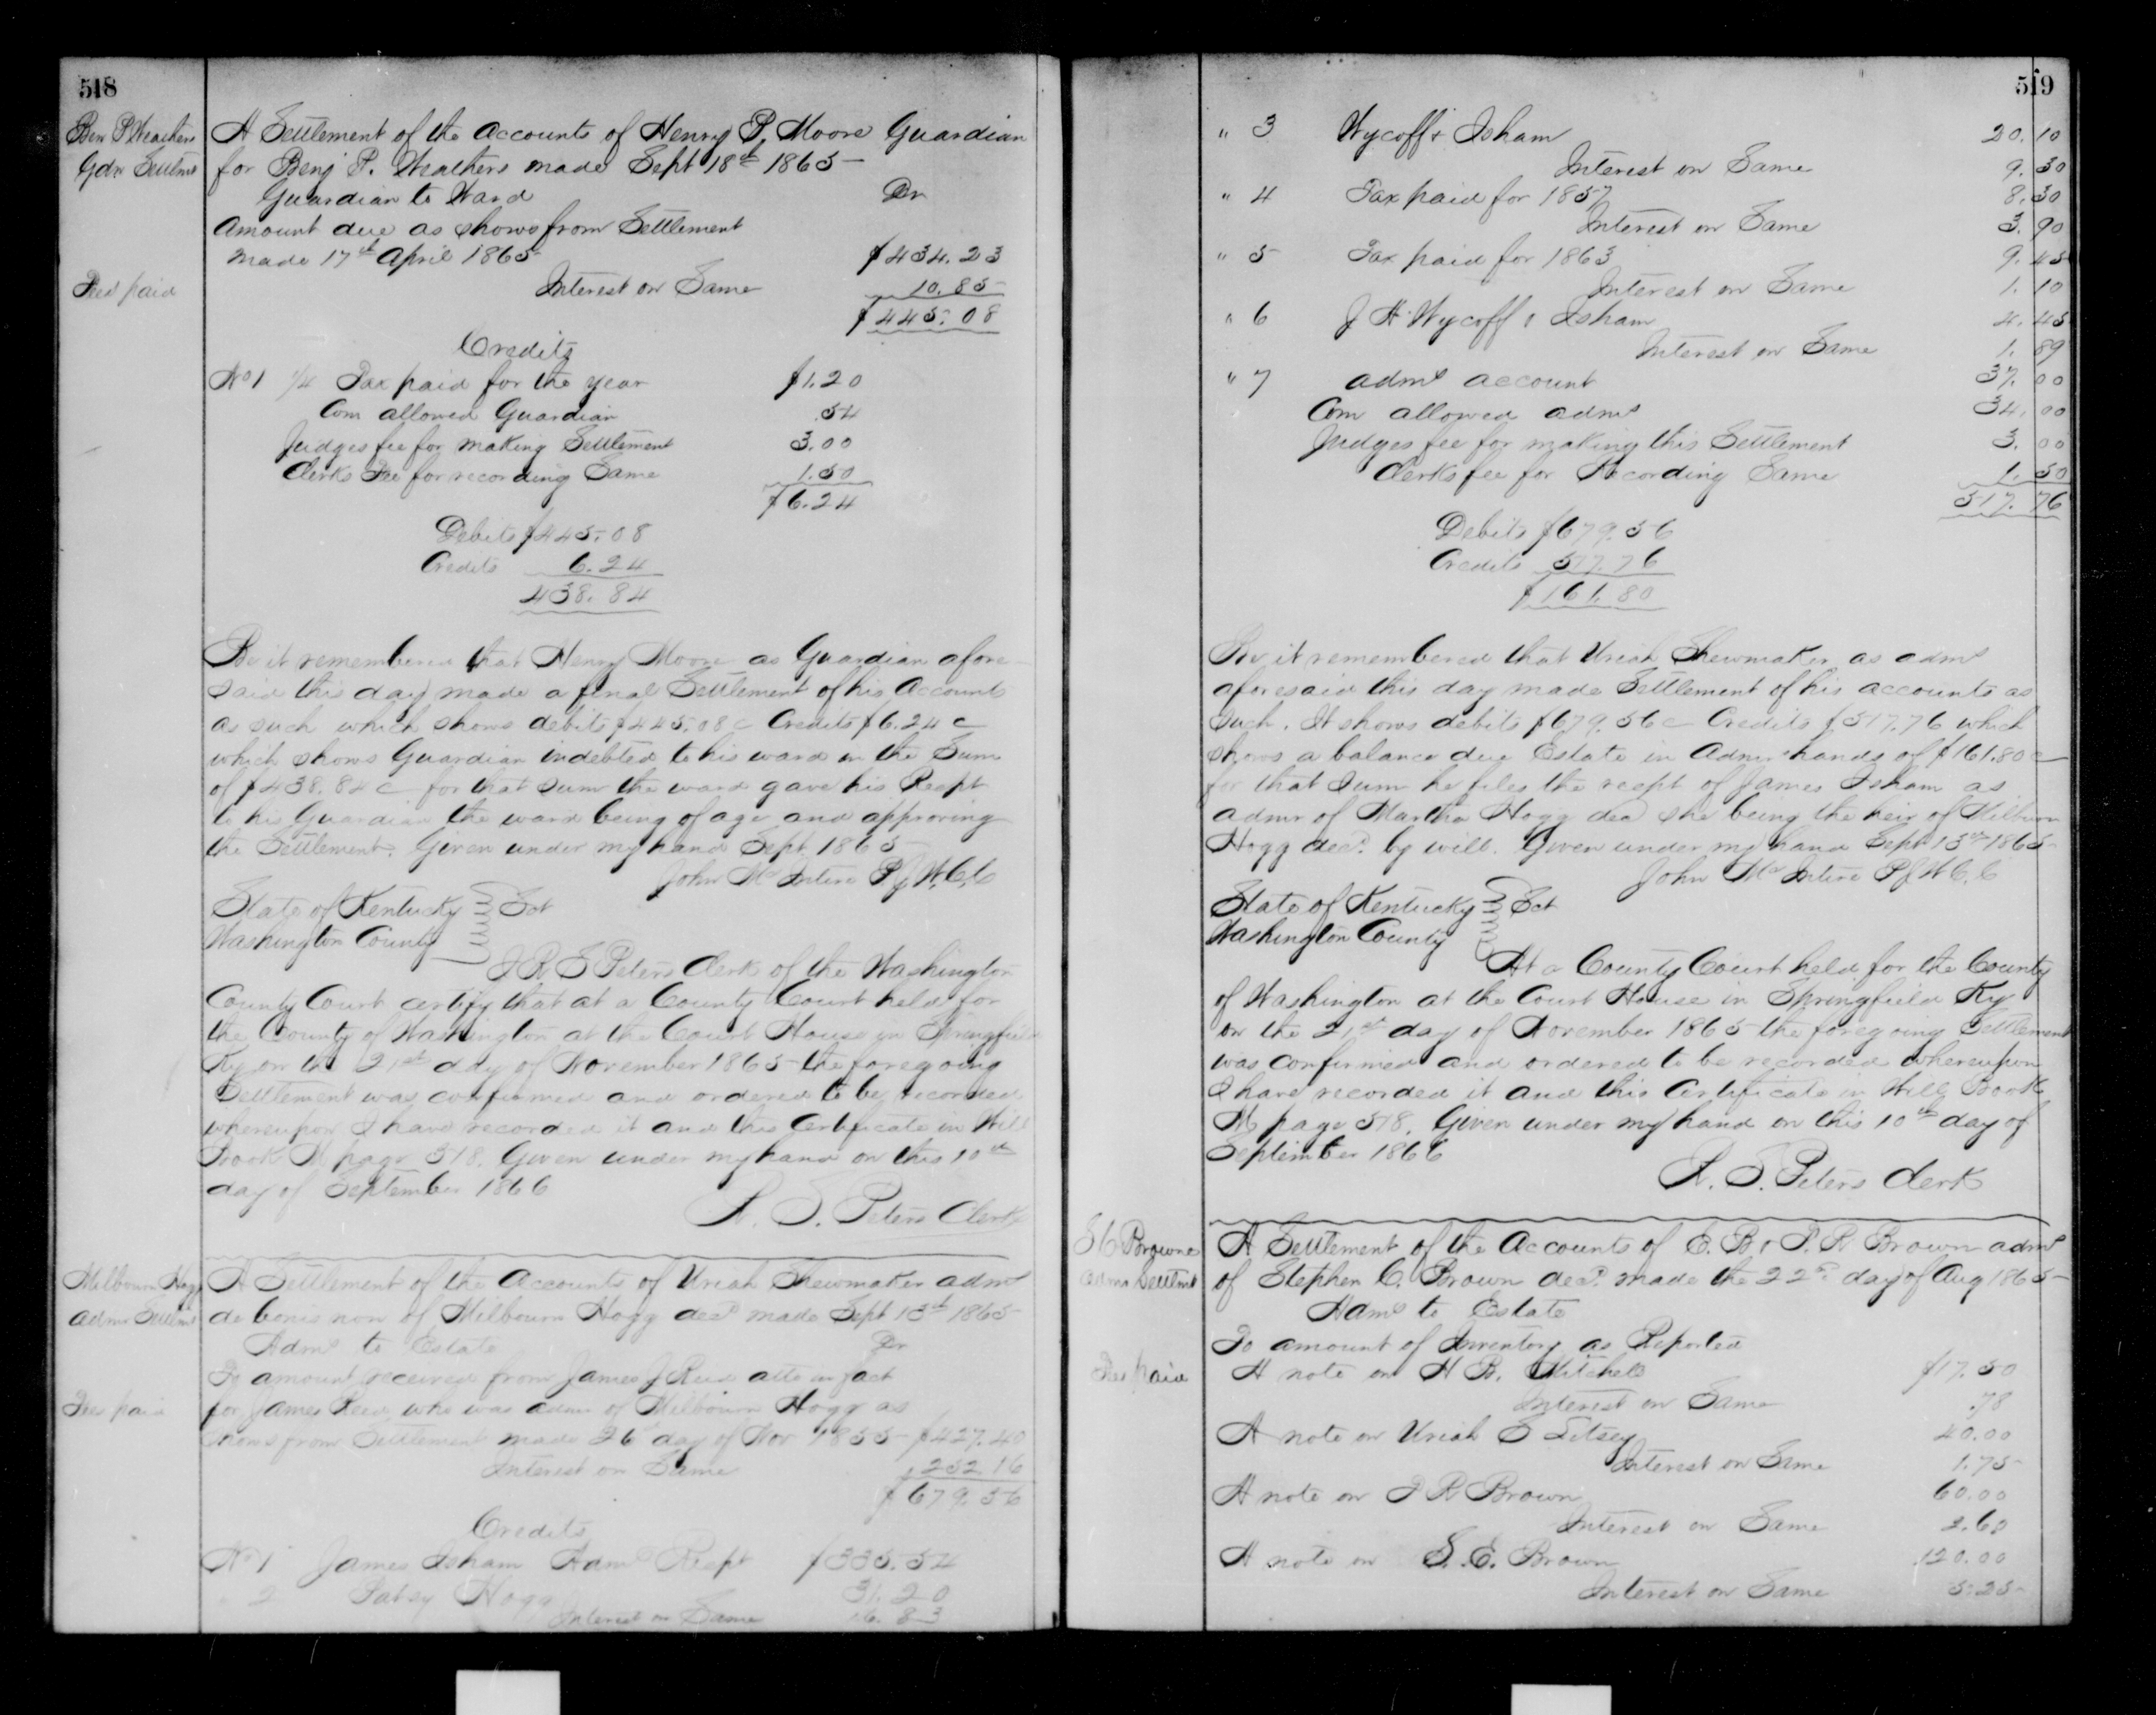 518
Ben P Weathers
Gdn Settmt
A Settlement of the Accounts of Henry P. Moore Guardian
for Benj P. Weathers made Sept 18th 1865
Guardian to Ward Dr
Amount due as shows from Settlement
made 17th April 1865 $434.23
Fees paid
Interest on Same 10.85
$445.08
Credits
No 1 1/4 Tax paid for the year $1.20
Com allowed Guardian .54
Judges fee for making Settlement 3.00
Clerks Fee for recording Same 1.50
$6.24
Debits $445.08
Credits 6.24
438.84
Be it remembered that Henry Moore as Guardian afore
said this day made a final Settlement of his Accounts
as such which shows debits $445.08c Credits $6.24c
which shows Guardian indebted to his ward in the Sum
of $438.84c for that Sum the ward gave his Recpt
to his Guardian the ward being of age and approving
the Settlement. Given under my hand Sept 1865
John McIntire PJWCC
State of Kentucky Sct
Washington County
I R S Peters Clerk of the Washington
County Court certify that at a County Court held for
the County of Washington at the Court House in Springfield
Ky on the 21st day of November 1865 the foregoing
Settlement was confirmed and ordered to be recorded
whereupon I have recorded it and this Certificate in Will
Book M page 518. Given under my hand on this 10th
day of September 1866
R. S. Peters Clerk
Milbourn Hogg
Admr Settmt
A Settlement of the Accounts of Uriah Shewmaker admr
de bonis non of Milbourn Hogg decd made Sept 13th 1865
Admr to Estate Dr
To amount received from James J Reed atto in fact
for James Reed who was admr of Milbourn Hogg as
Fees paid
shows from Settlement made 26 day of Nov 1855 $427.40
Interest on Same 252.16
$679.56
Credits
No 1 James Isham Admr Recpt $335.54
2 Patsy Hogg 31.20
Interest on Same 16.83
519
" 3 Wycoff & Isham 20.10
Interest on Same 9.30
" 4 Tax paid for 1857 8.30
Interest on Same 3.90
" 5 Tax paid for 1863 9.45
Interest on Same 1.10
" 6 J H Wycoff & Isham 4.45
Interest on Same 1.89
" 7 admr account 37.00
Com allowed admr 34.00
Judges fee for making this Settlement 3.00
Clerks fee for Recording Same 1.50
517.76
Debits $679.56
Credits 517.76
$161.80
Be it remembered that Uriah Shewmaker as admr
aforesaid this day made Settlement of his accounts as
such. It shows debits $679.56c Credits $517.76 which
shows a balance due Estate in Admr hands of $161.80c
for that Sum he files the recpt of James Isham as
admr of Martha Hogg decd she being the heir of Milburn
Hogg decd. by will. Given under my hand Sept 13th 1865
John McIntire PJWCC
State of Kentucky Sct
Washington County
At a County Court held for the County
of Washington at the Court House in Springfield Ky
on the 21st day of November 1865 the foregoing Settlement
was confirmed and ordered to be recorded whereupon
I have recorded it and this Certificate in Will Book
M page 518. Given under my hand on this 10th day of
September 1866
R. S. Peters Clerk
S C Browne
Admr Settmt
A Settlement of the Accounts of E. B. & P. R Brown admr
of Stephen C. Brown decd. made the 22d. day of Aug 1865
Admr to Estate
To amount of Inventory as Reported
Fees paid
A note on H B. Mitchell $17.50
Interest on Same .78
A note on Uriah S Litsey 40.00
Interest on Same 1.75
A note on P R Brown 60.00
Interest on Same 2.60
A note on S. E. Brown 120.00
Interest on Same 5.25